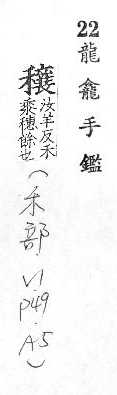 22龍龕手鑑
穰汝羊反禾
乘穗餘也
(禾部 V1. P49. A5)